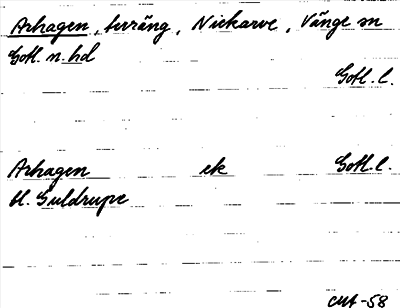 Arhagen, terräng, Nickarve, Vänge sn
Gotl. n. hd
Gotl. l.
Arhagen ek Gotl. l.
bl. Guldrupe
CMA-58